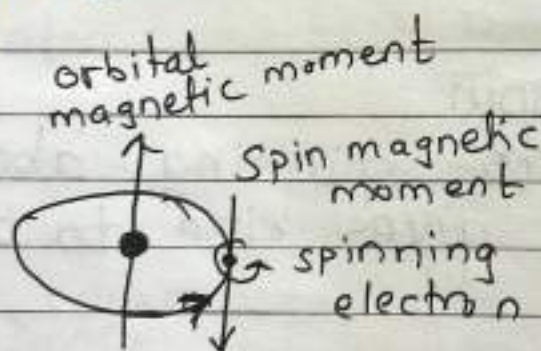 orbital
magnetic moment
Spin magnetic
moment
spinning
electron